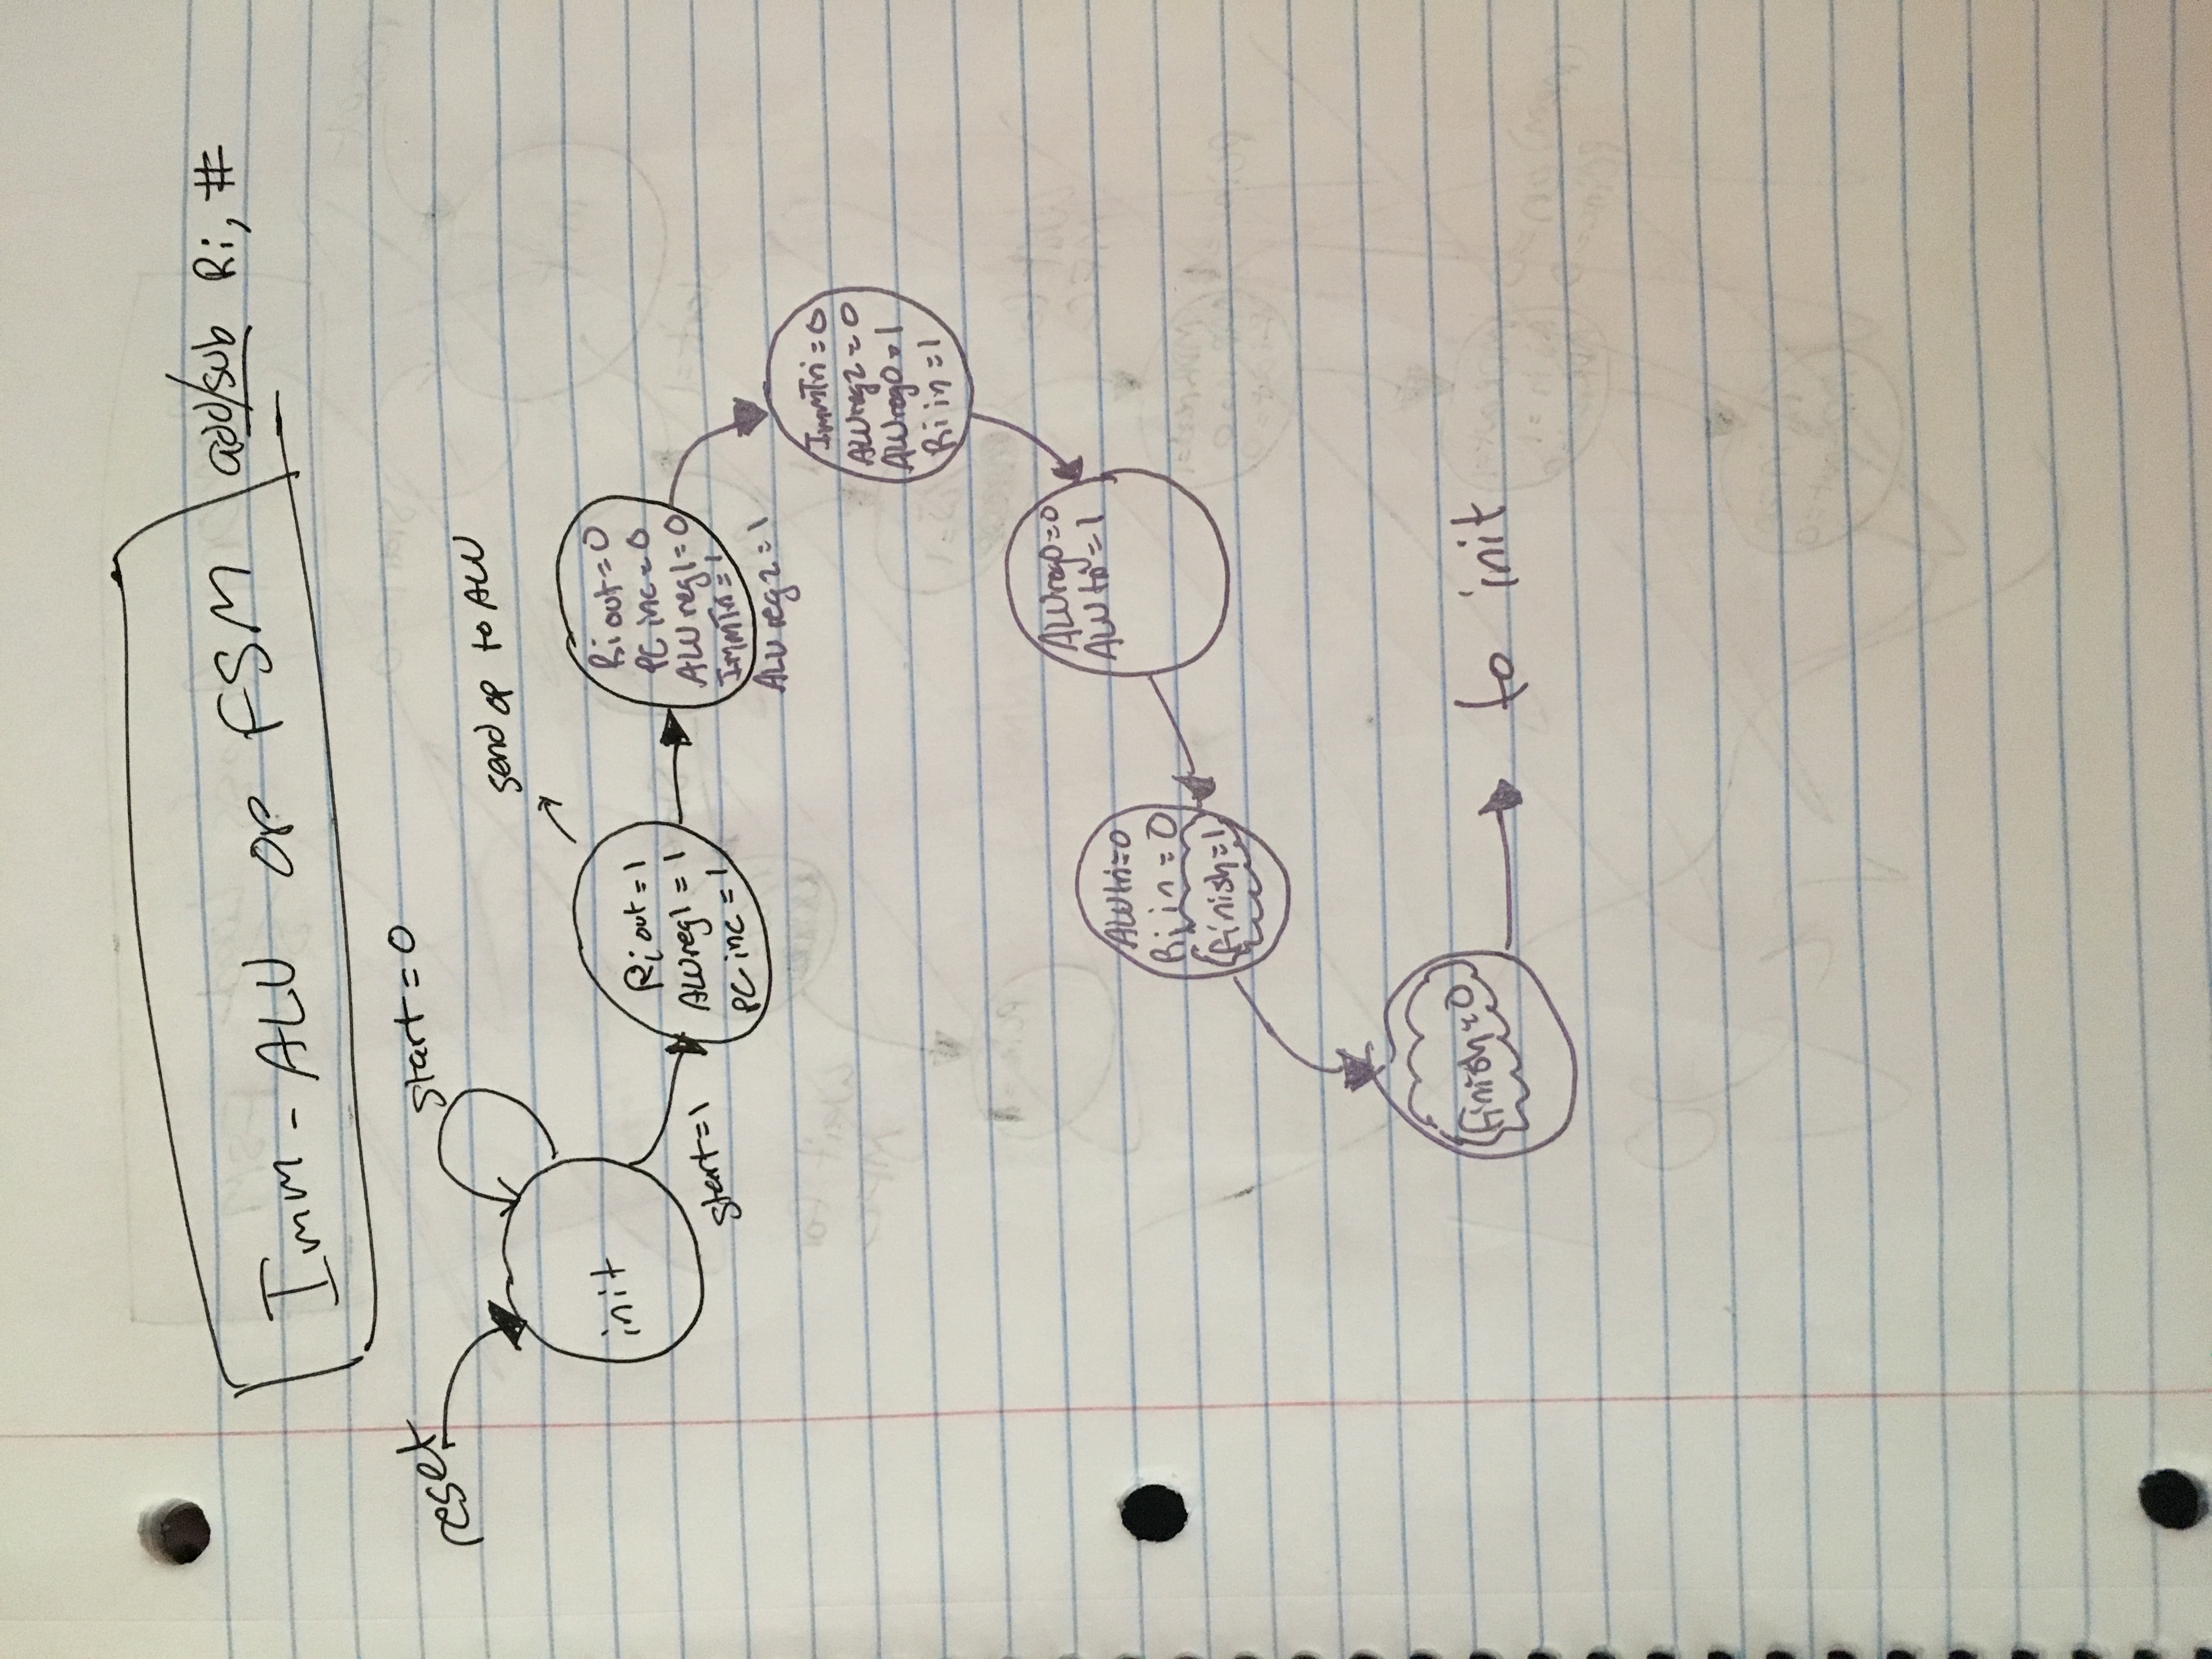 Imm - ALU op FSM
add/sub Ri, #
reset
start = 0
init
start=1
send op to ALU
Ri out = 1
ALUreg1 = 1
PC inc = 1
Ri out = 0
PC inc = 0
ALU reg1 = 0
ImmTri = 1
ALU reg2 = 1
ImmTri = 0
ALUreg2 = 0
ALUreg0 = 1
Ri in = 1
ALUreg0 = 0
ALU tri = 1
ALUtri=0
Ri in = 0
finish=1
finish=0
to init